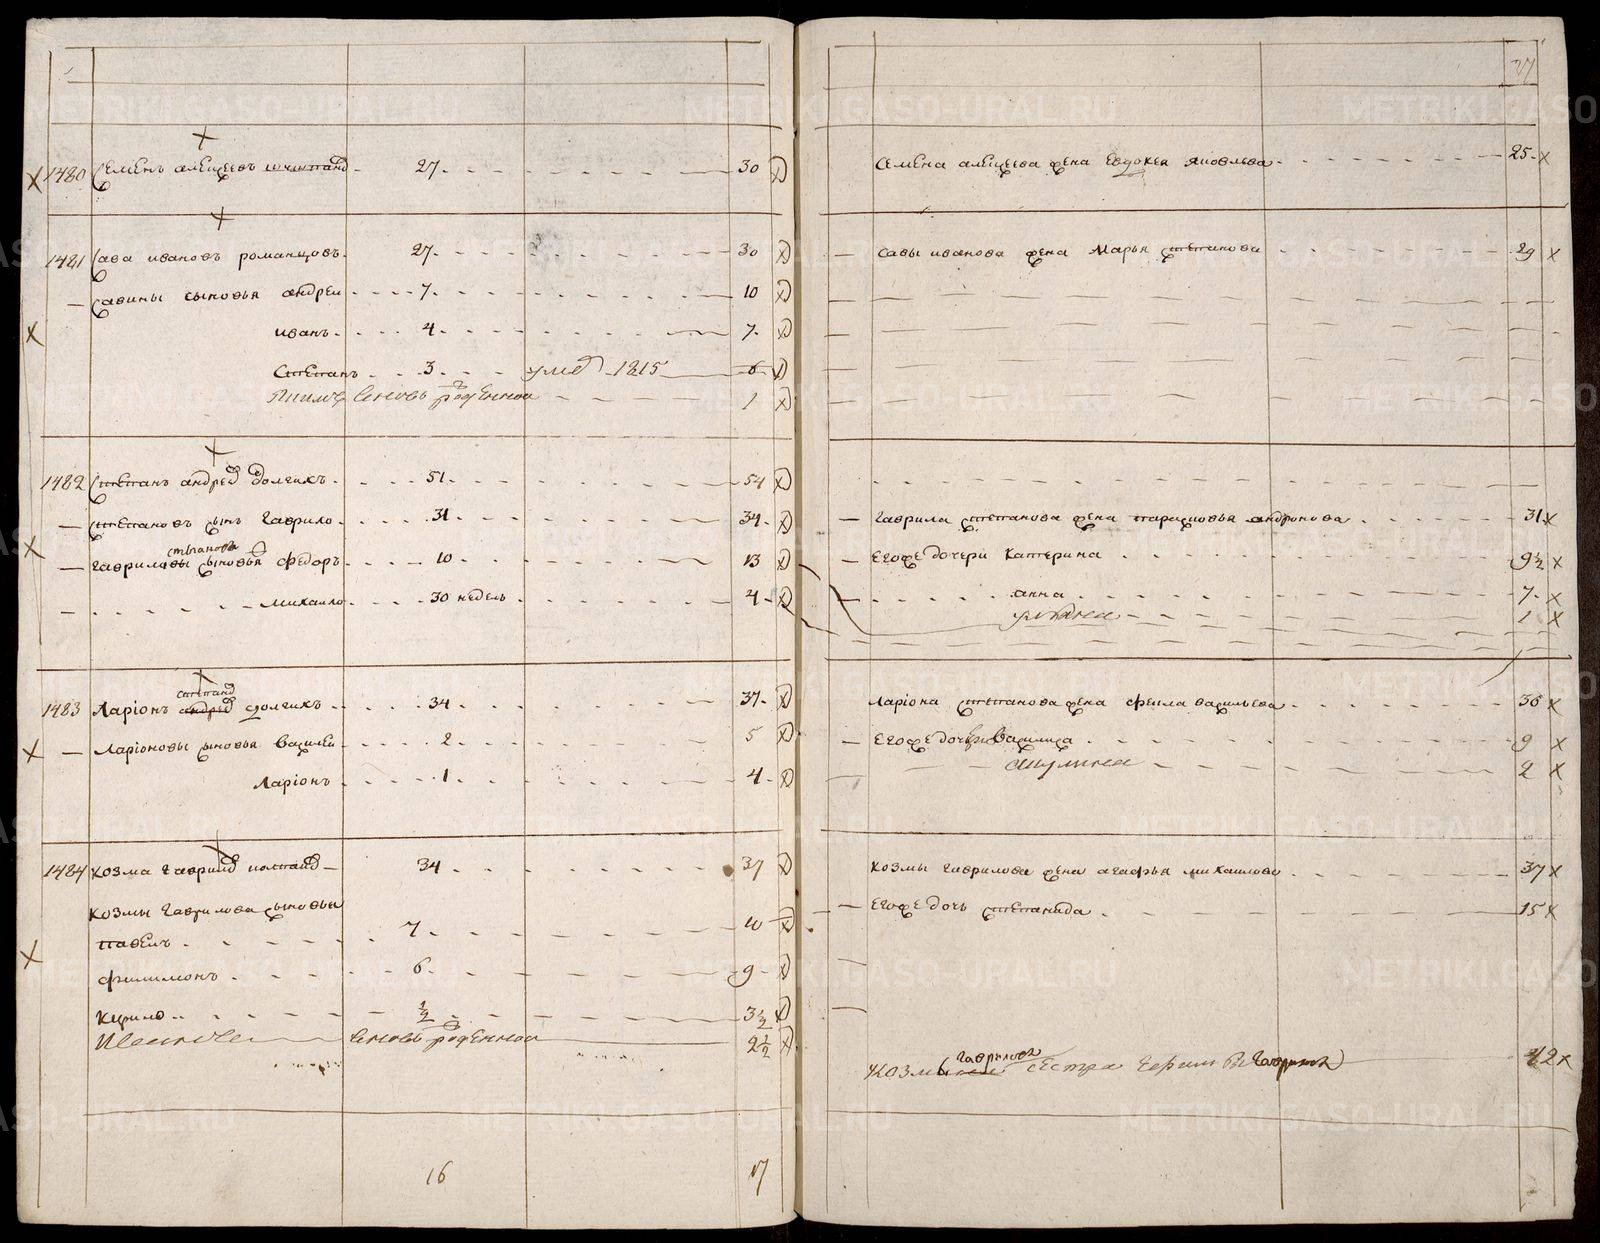 27
1480 Семенъ алеѯеевъ 27 30
1481 Сава ивановъ романцовъ 27 30
Савины сыновья андреи 7 10
иванъ 4 7
Степанъ 3 умѣ 1815 6
вновь рожденной 1
1482 Степанъ андреев долгихъ 51 54
степановъ сынъ гаврило 31 34
степанова
гавриловы сыновья федоръ 10 13
михаило 30 недель 4
степанов
1483 Ларіонъ андреев долгихъ 34 37
Ларіоновы сыновья василеи 2 5
Ларіонъ 1 4
1484 козма гаврилов 34 37
козмы гаврилова сыновья
павелъ 7 10
филимонъ 6 9
кирило ½ 3½
вновь рожденной 2½
16 17
Семена алеѯеева жена евдокея яковлева 25
Савы иванова жена Марья степанова 29
гаврила степанова жена парасковья андронова 31
Егоже дочери катерина 9½
анна 7
ульяна 1
Ларіона степанова жена феkла васильева 36
Егоже дочери василиса 9
акулина 2
козмы гаврилова жена агафья михаилова 37
Егоже дочь степанида 15
гаврилова
козмы сестра 42
METRIKI.GASO-URAL.RU